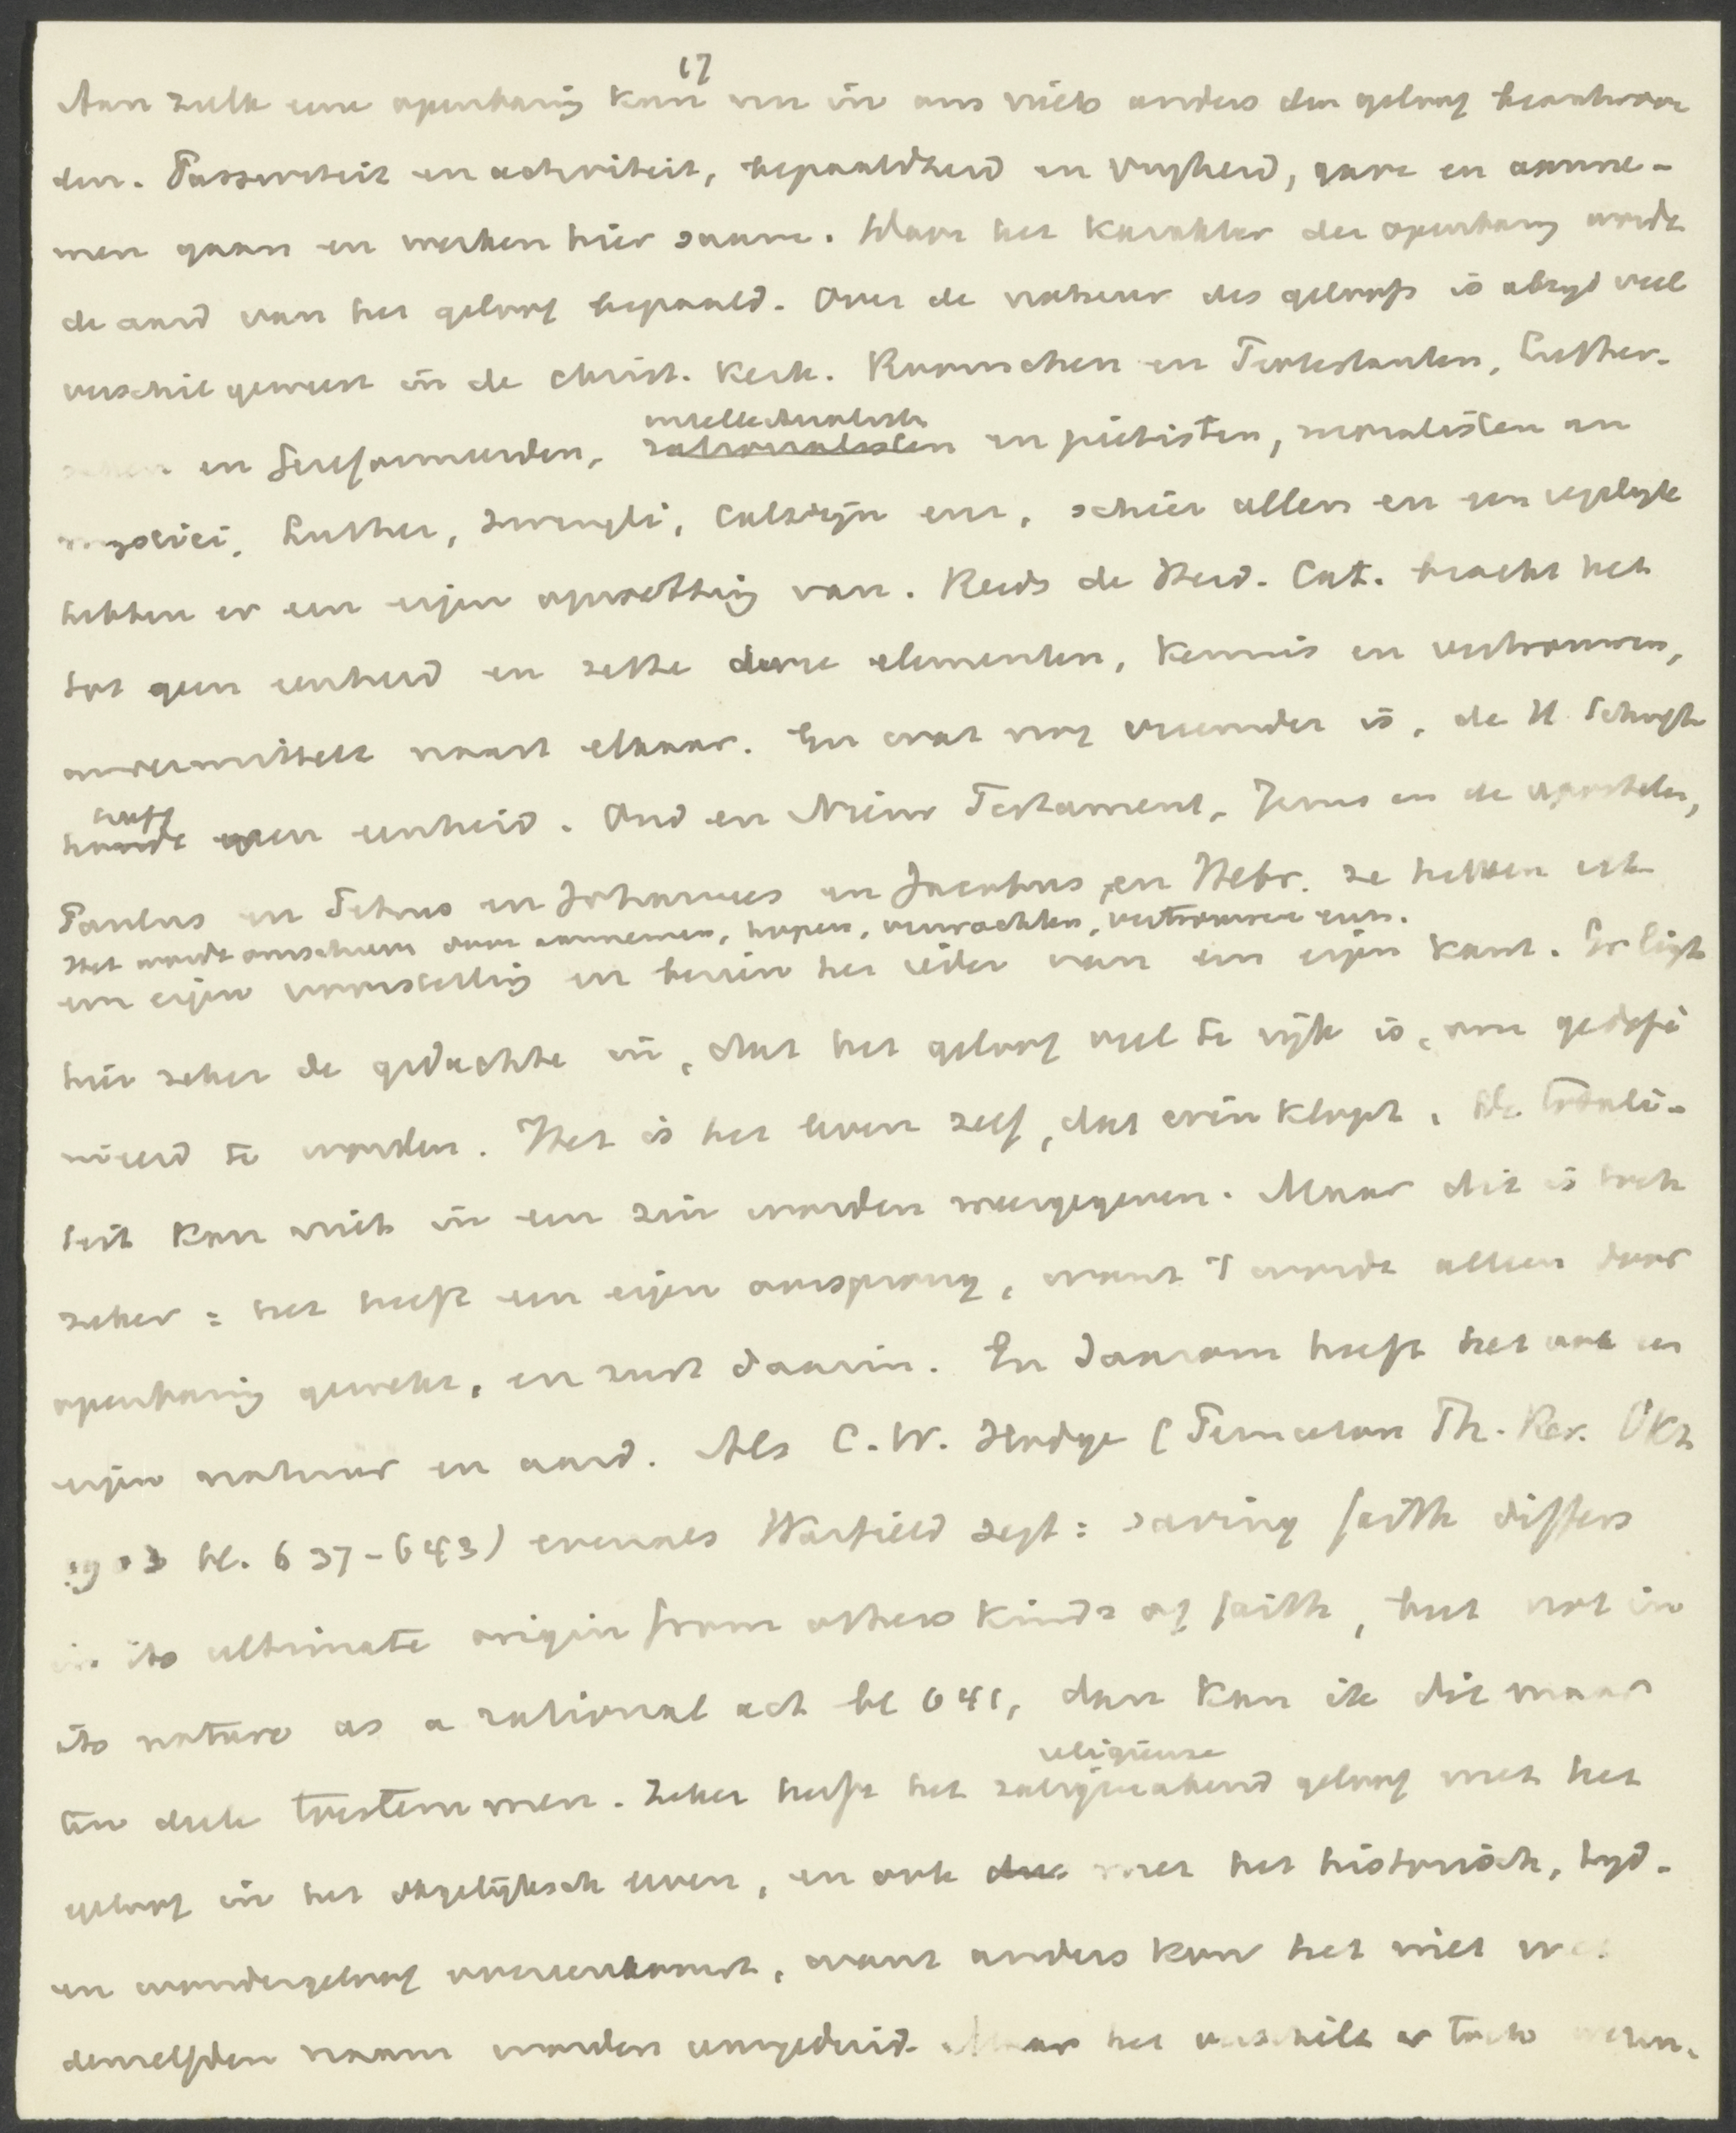 17
Aan zulk eene openbaring kan nu in ons niets anders dan geloof beantwoor
den. Passiviteit en activiteit, bepaaldheid en vrijheid, gave en aanne-
men gaan en werken hier saam. Door het karakter der openbaring wordt
de aard van het geloof bepaald. Over de natuur des geloofs is altijd veel
verschil geweest in de christ. kerk. Roomschen en Protestanten, Luther-
schen en Gereformeerden, rationalisten en pietisten, moralisten en
intellectualisten
mystici, Luther, Zwingli, Calvijn enz, schier allen en een iegelijk
hebben er een eigen opvatting van. Reeds de Heid. Cat. bracht het
tot geen eenheid en zette deze elementen, kennis en vertrouwen,
onvermiddeld naast elkaar. En wat nog vreemder is, de H Schrift
heeft
geen eenheid. Oud en Nieuw Testament, Jezus en de apostelen,
Paulus en Petrus en Johannes en Jacobus en Hebr. ze hebben elk
Het wordt omschreven door aannemen, hopen, verwachten, vertrouwen enz.
een eigen voorstelling en bezien het ieder van een eigen kant. Er ligt
hier zeker de gedachte in, dat het geloof veel te rijk is, om gedefi
nieerd te worden. Het is het leven zelf, dat erin klopt. De totali-
teit kan niet in een zin worden weergegeven. Maar dit is toch
zeker: het heeft een eigen oorsprong, want 't wordt alleen door
openbaring gewekt, en rust daarin. En daarom heeft het ook een
eigen natuur en aard. Als C. W. Hodge (Princeton Th. Rev. Okt
1903 bl. 637-643) evenals Warfield zegt: saving faith differs
in its ultimate origin from others kinds of faith, but not in
its nature as a rational act bl 641, dan kan ik dit maar
ten deele toestemmen. Zeker heeft het zaligmakend geloof met het
religieuze
geloof in het dagelijksch leven, en ook met het historisch, tijd-
en wondergeloof overeenkomst, want anders kon het niet met
denzelfden naam worden aangeduid. Maar het verschilt er toch